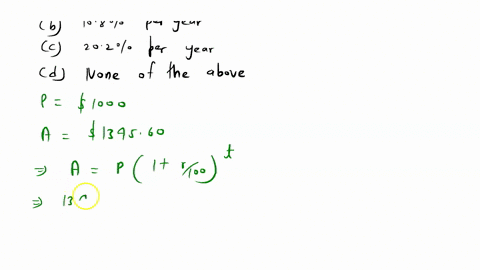 (b) 10.8% per year
(c) 20.2% per year
(d) None of the above
P = $1000
A = $1395.60
⇒ A = P(1 + r/100)^t
⇒ 13